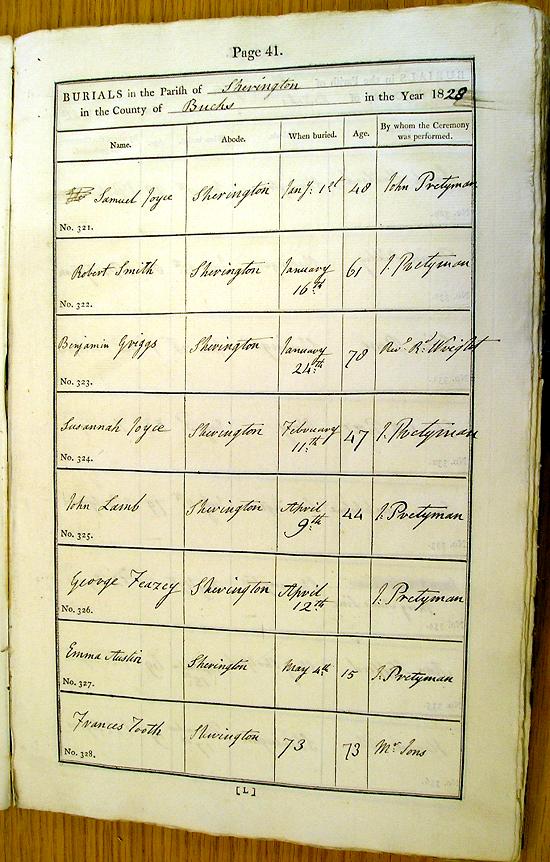 Page 41.
BURIALS in the Parish of Sherington
in the County of Bucks in the Year 1828
Name. Abode. When buried. Age. By whom the Ceremony was performed.
Samuel Joyce Sherington Jany: 1st 48 John Pretyman
No. 321.
Robert Smith Sherington January 16th 61 J. Pretyman
No. 322.
Benjamin Griggs Sherington January 24th 78 Revd. Rd. Wright
No. 323.
Susannah Joyce Sherington February 11th 47 J. Pretyman
No. 324.
John Lamb Sherington April 9th 44 J. Pretyman
No. 325.
George Feazey Sherington April 12th J. Pretyman
No. 326.
Emma Austin Sherington May 4th 15 J. Pretyman
No. 327.
Frances Tooth Sherington 73 73 Mr
No. 328.
[L]